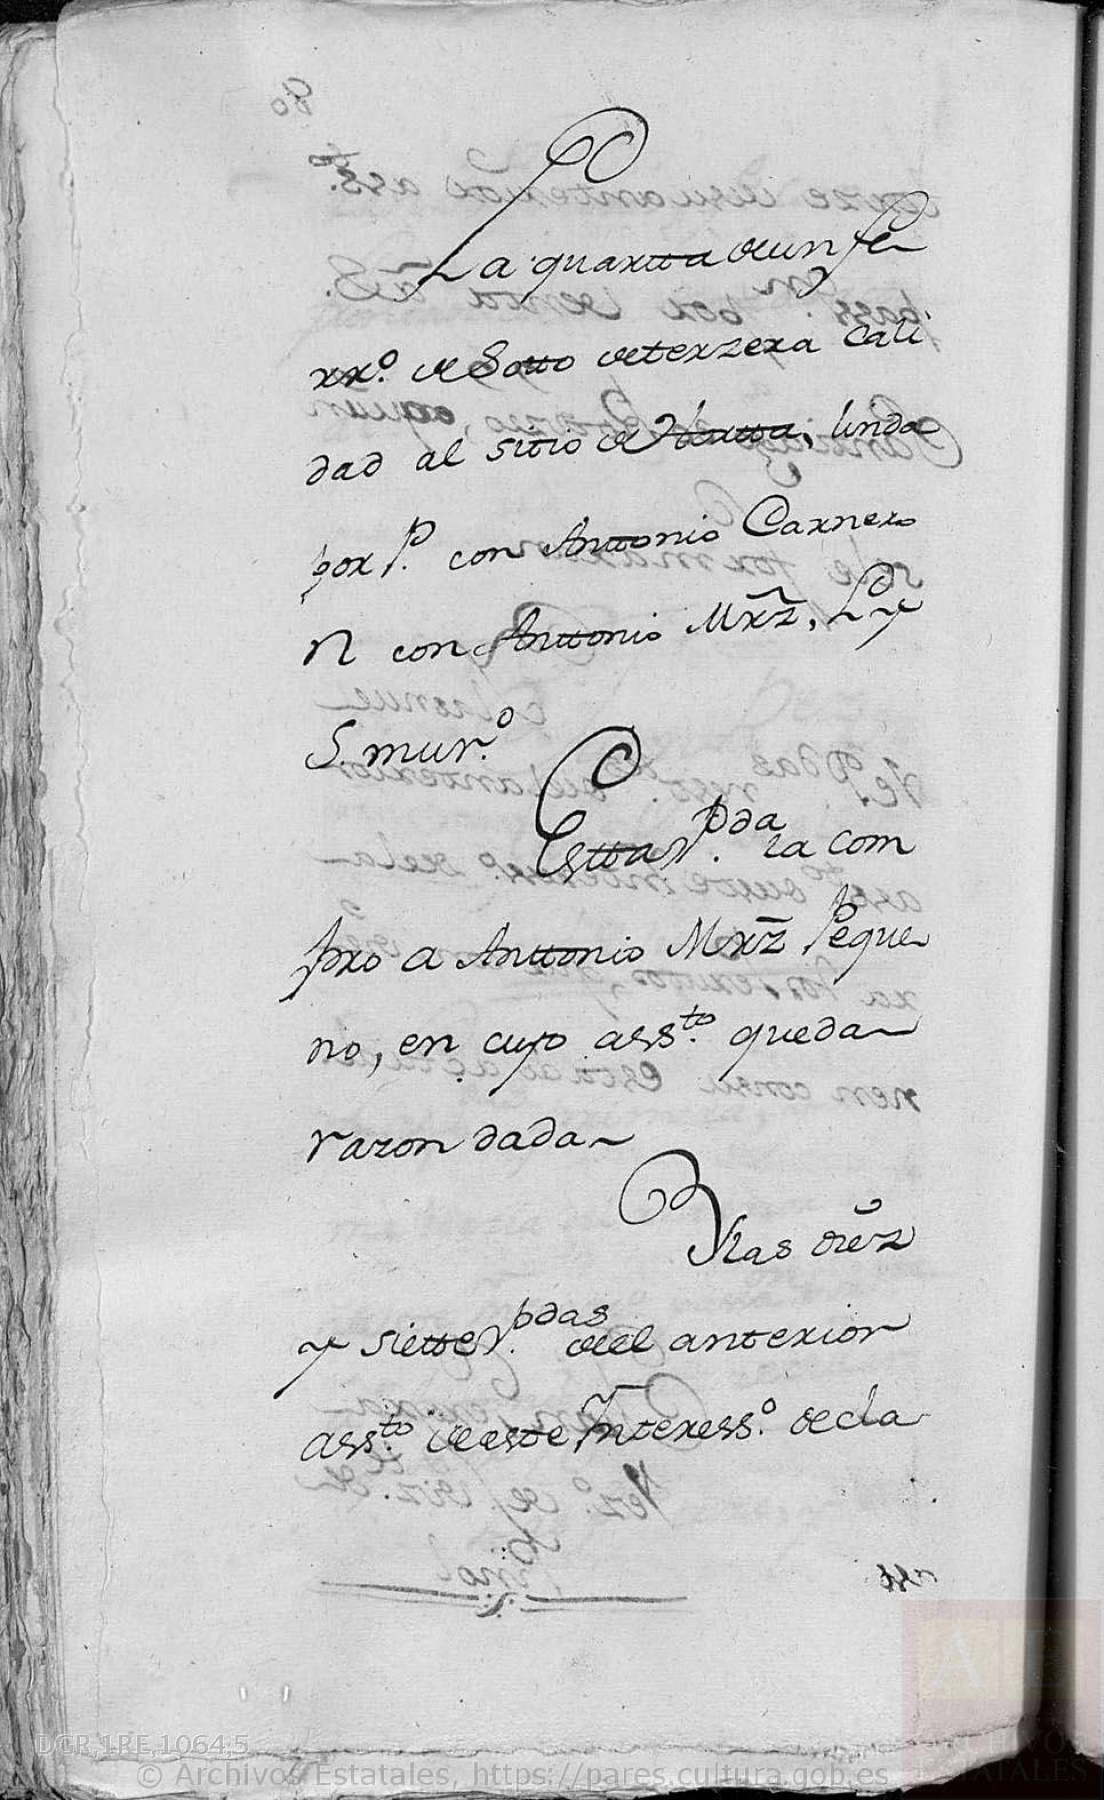 La quartta de un fe
rr.º de Sotto de terzera cali
dad al sitio de linda
por P. con Anttonio Carnero
N con Anttonio Mrz̃, L y
S. mur.º
Estta p.da la com
pro a Anttonio Mrz̃ Peque
no, en cuyo ass.to queda
razon dada
Y las diez
y siette p.das de el anterior
ass.to de este Interess.º decla
DCR,1RE,1064,5
© Archivos Estatales, https://pares.cultura.gob.es
AE
ARCHIVOS
ESTATALES